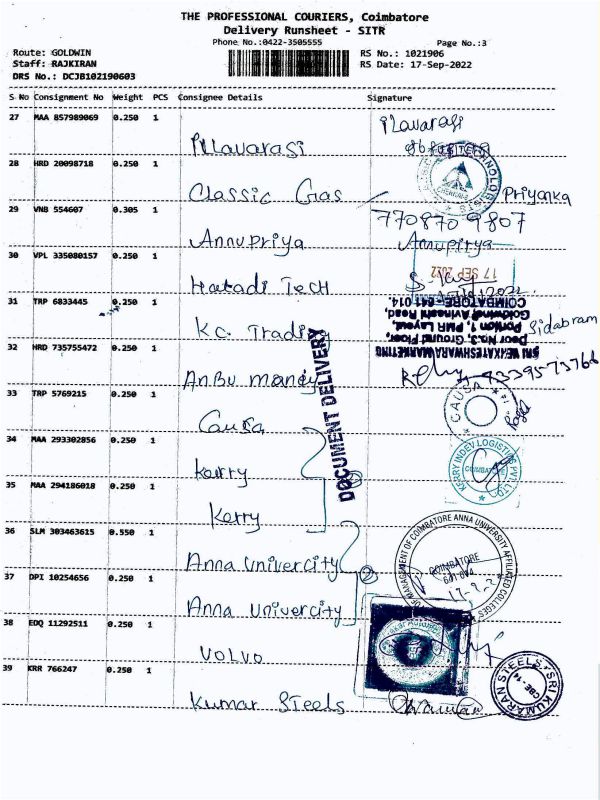 THE PROFESSIONAL COURIERS, Coimbatore
Delivery Runsheet - SITR
Phone No.:0422-3505555
Page No.:3
Route: GOLDWIN
RS No.: 1021906
Staff: RAJKIRAN
RS Date: 17-Sep-2022
DRS No.: DCJB102190603
S No Consignment No Weight PCS Consignee Details Signature
27 MAA 857989069 0.250 1
Illavarasi
ilavarasi
28 HRD 20098718 0.250 1
Classic Gas
Priyanka
29 VNB 554607 0.305 1
7708709807
Annupriya
Annupirya
30 VPL 335080157 0.250 1
17 SEP 2022
Hatadi Tech
31 TRP 6833445 0.250 1
SRI VENKATESHWARA MARKETING
Door No.3, Ground Floor,
Portion 1, PMR Layout,
Goldwins, Avinashi Road,
COIMBATORE - 641 014.
Sidabram
Kc. Trading
32 HRD 735755472 0.250 1
9339573766
Anbu mandy
DOCUMENT DELIVERY
33 TRP 5769215 0.250 1
CAUSA
Causa
34 MAA 293302856 0.250 1
Kerry
KERRY INDEV LOGISTICS PVT LTD
COIMBATORE
35 MAA 294186018 0.250 1
Kerry
36 SLM 303463615 0.550 1
Anna Univercity
OF MANAGEMENT OF COIMBATORE ANNA UNIVERSITY AFFILIATED COLLEGES
COIMBATORE
2
37 DPI 10254656 0.250 1
Anna Univercity
38 EDQ 11292511 0.250 1
VOLVO
39 KRR 766247 0.250 1
Kumar Steels
SRI KUMARAN STEELS
CBE-14